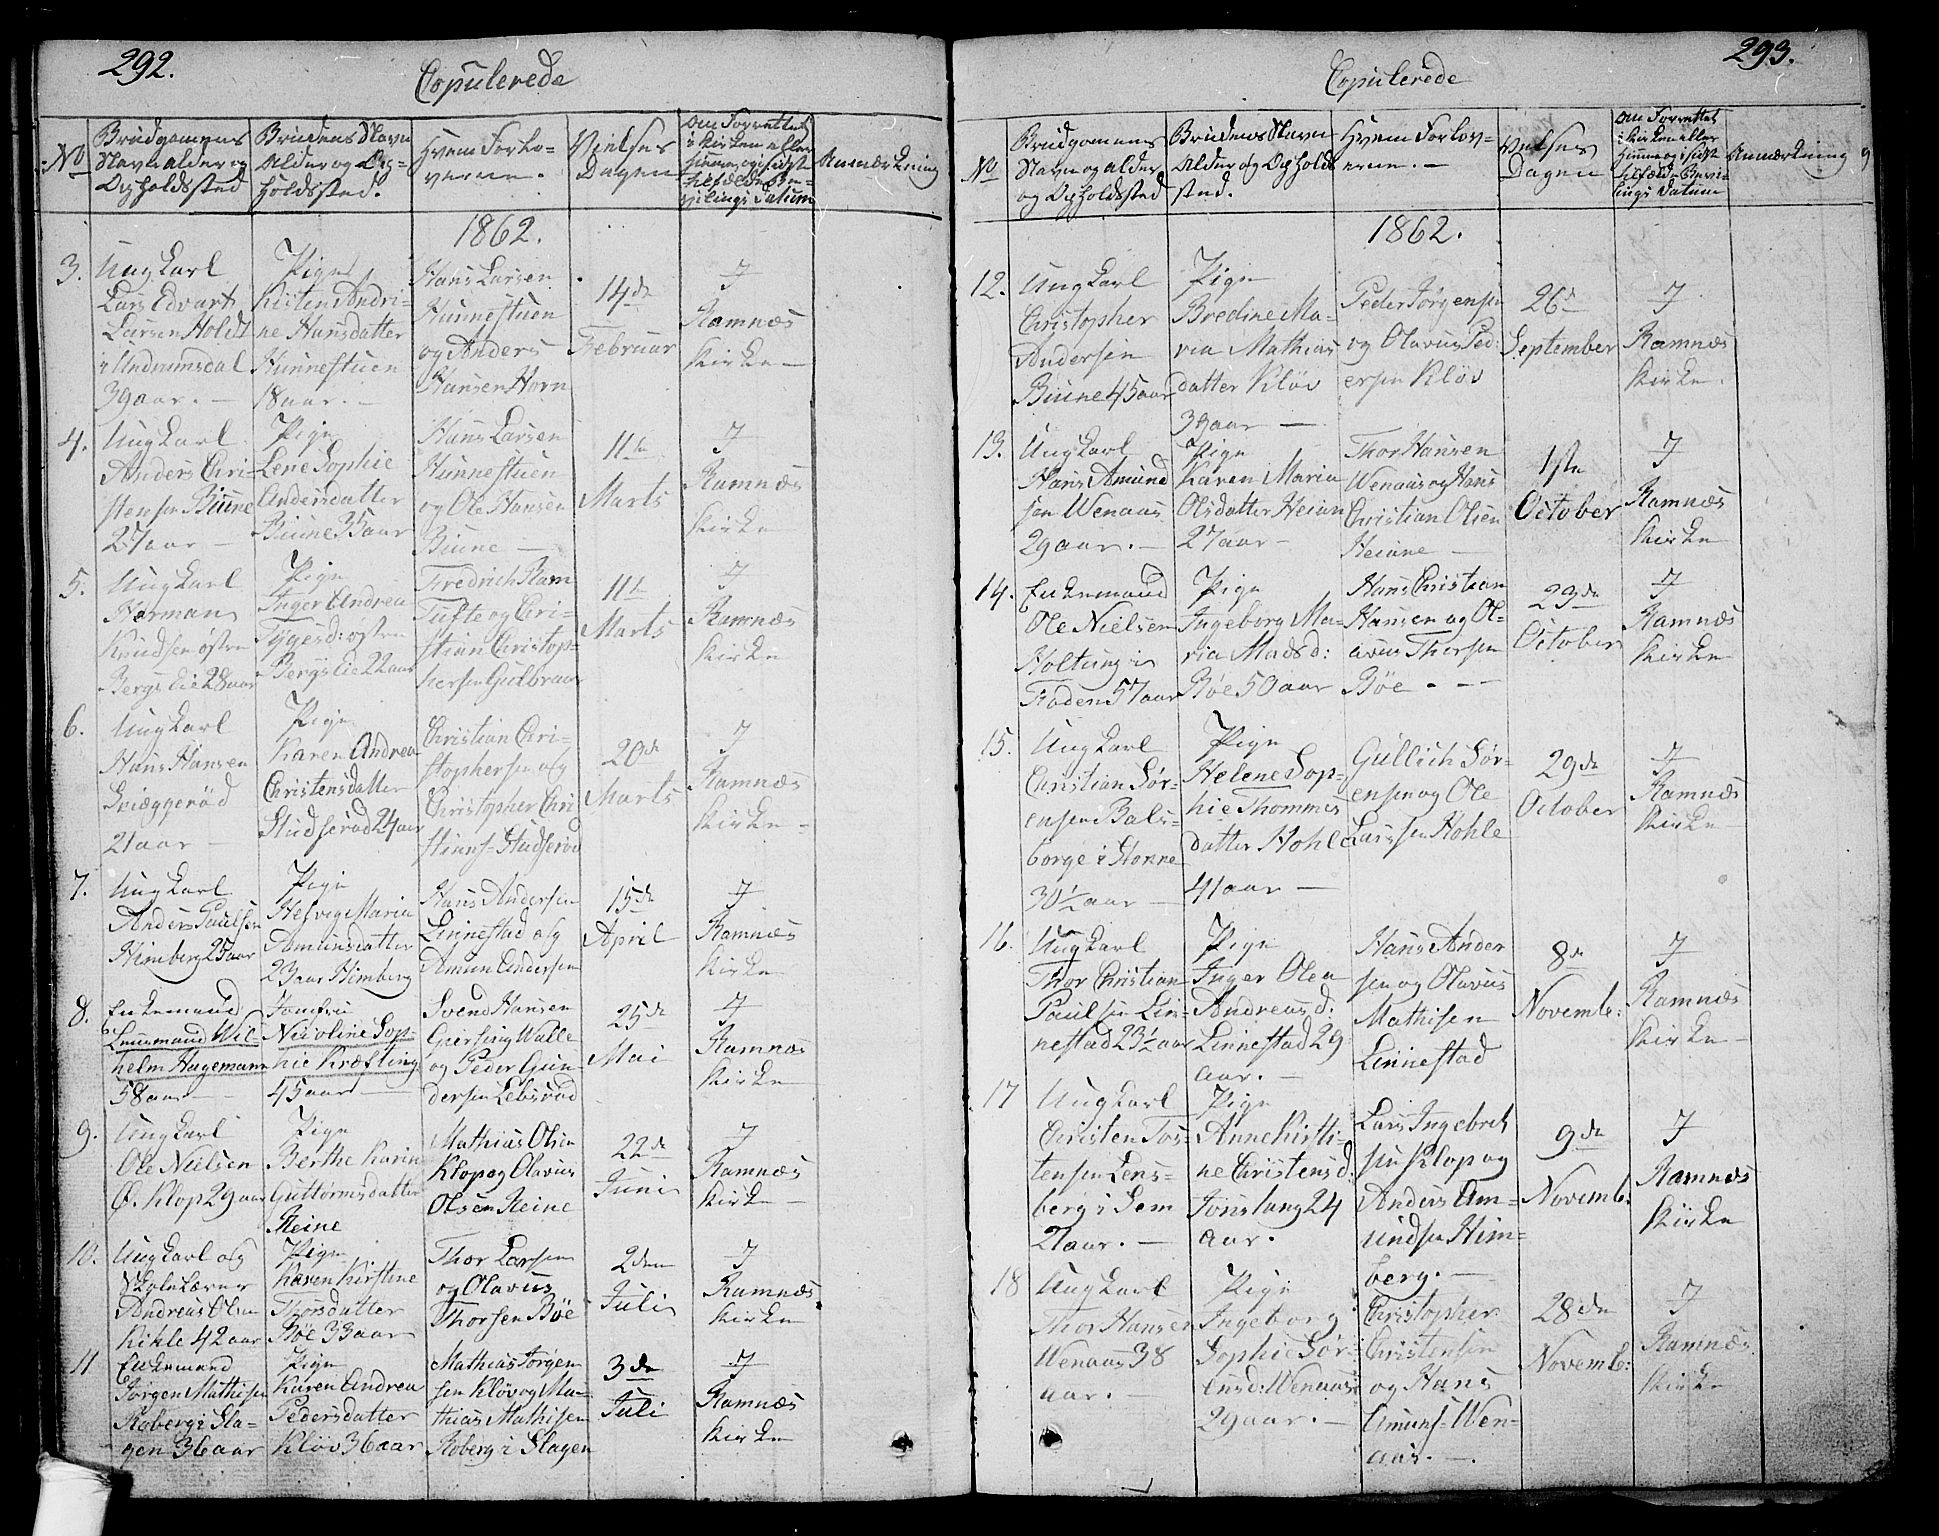 292.
Copulerede
No
Brudgomens
Navn alder og
Opholdssted
Brudens Navn
Alder og Op-
holdssted.
Hvem Forlo-
verne.
Vielses
Dagen
Om Forrettet
i Kirken eller
hjemme og i sidste
tilfælde Be-
vilings Datum
Anmærkning
1862.
3.
Ungkarl
Lars Edvart
Larsen Holdt
i Undrumsdal
39 aar. —
Pige
Kistens Andri-
ne Hansdatter
Hunnestuen
18 aar. —
Hans Larsen
Hunnestuen
og Anders
Hansen Horn
14de
Februar
I
Ramnæs
Kirke —
4.
Ungkarl
Anders Chri-
stensen Biune
27 aar —
Pige
Lene Sophie
Andersdatter
Biune 35 aar
Hans Larsen
Hunnestuen
og Ole Hansen
Biune —
11te
Marts
I
Ramnæs
Kirke
5.
Ungkarl
Herman
Knudsen østre
Bergslie 28 aar
Pige
Inger Andrea
Tygesd: østre
Bergslie 22 aar
Fredrich Ram
Tufte og Chri-
stian Christop-
hersen Gulbraar
11te
Marts
I
Ramnæs
Kirke
6.
Ungkarl
Hans Hansen
Sviæggerød
21 aar —
Pige
Karen Andrea
Christensdatter
Studserød 24 aar
Christian Chri-
stophersen og
Christopher Chri
stians- Studserød
20de
Marts
I
Ramnæs
Kirke -
7.
Ungkarl
Anders Paulsen
Himberg 25 aar
Pige
Helvig Maria
Amunsdatter
23 aar Himberg
Hans Andersen
Linnestad og
Amun Andersen
15de
April
I
Ramnæs
Kirke —
8.
Enkemand
Lensmand Wil-
helm Hagemann
58 aar —
Jomfru
Nicoline Sop-
hie Kræfting
45 aar —
Svend Hansen
Giersing Walle
og Peder Gun-
dersen Lebsrød
25de
Mai
I
Ramnæs
Kirke —
9.
Ungkarl
Ole Nielsen
Ø. Klop 29 aar
Pige
Berthe Karin
Guttormsdatter
Reine
Mathias Olsen
Klop og Olavus
Olsen Reine
22de
Juni
I
Ramnæs
Kirke —
10.
Ungkarl og
Skolelærer
Andreas Olsen
Kihle 42 aar
Pige
Karen Kirstine
Thorsdatter
Bøe 33 aar
Thor Larsen
og Olavus
Thorsen Bøe
2den
Juli
I
Ramnæs
Kirke
11
Enkemand
Jørgen Mathisen
Roberg i Sla-
gen 36 aar
Pige
Karen Andrea
Pedersdatter
Kløv 36 aar
Mathias Jørgen
sen Kløv og Ma-
thias Mathisen
Roberg i Slagen
3de
Juli
I
Ramnæs
Kirke
293.
Copulerede
No
Brudgomens
Navn og alder
og Opholdssted
Brudens Navn
Alder og Opholds
sted.
Hvem Forlov-
erne. —
Vielses
Dagen
Om Forrettet
i Kirken eller
hjemme og i sidst
tilfæld- Bevi-
lings Datum
Anmærkning
1862.
12.
Ungkarl
Christopher
Andersen
Biune 45 aar
Pige
Bredine Ma-
ria Mathias
datter Kløv
39 aar —
Peder Jørgensen
og Olavus Ped:
ersen Kløv
26de
September
I
Ramnæs
Kirke.
13.
Ungkarl
Hans Amund
sen Wenaas
29 aar. —
Pige
Karen Maria
Olsdatter Heian
27 aar —
Thor Hansen
Wenaas og Hans
Christian Olsen
Heiane —
1ste
October
I
Ramnæs
Kirke
14.
Enkemand
Ole Nielsen
Holtung i
Foden 57 aar
Pige
Ingeborg Ma-
ria Mads d:
Bøe 50 aar
Hans Christian
Hansen og Ol-
avus Thorsen
Bøe - - -
23de
October
I
Ramnæs
Kirke
15.
Ungkarl
Christian Sør-
ensen Bals-
borge i Stokke
30 1/2 aar —
Pige
Helene Sop-
hie Thommes
datter Hohle
41 aar —
Gullich Sør-
ensen og Ole
Larssen Hohle
29de
October
I
Ramnæs
Kirke
16.
Ungkarl
Thor Christian
Paulsen Lin-
nestad 23 1/2 aar
Pige
Inger Olea
Andreas d:
Linnestad 29
aar. —
Hans Ander
sen og Olavus
Mathisen
Linnestad
8de
Novemb:
I
Ramnæs
Kirke —
17
Ungkarl
Christen Tos-
tensen Lens-
berg i Sem
27 aar. —
Pige
Anne Kirsti-
ne Christensd:
Jonslang 24
aar.
Lars Ingebret
sen Klop og
Anders Am-
undsen Him-
berg. —
9de
Novemb:
I
Ramnæs
Kirke
18
Ungkarl
Thor Hansen
Wenaas 38
aar. —
Pige
Ingeborg
Sophie Sør-
ensd: Wenaas
29 aar. —
Christopher
Christensen
og Hans
Amuns- Wen-
aas. —.
28de
Novemb:
I
Ramnæs
Kirke